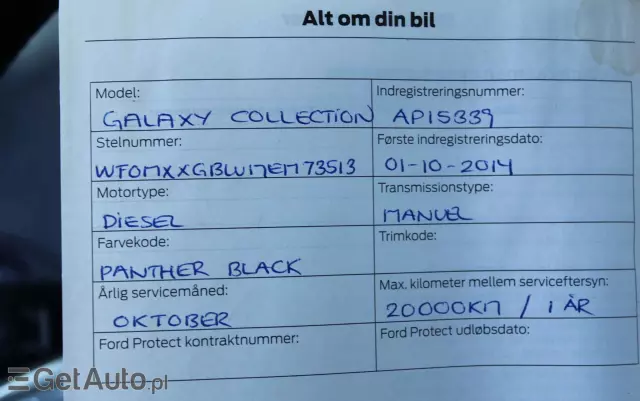 Alt om din bil
Model:
GALAXY COLLECTION
Indregistreringsnummer:
AP15339
Stelnummer:
WFOMXXGBWMEM73513
Første indregistreringsdato:
01-10-2014
Motortype:
DIESEL
Transmissionstype:
MANUEL
Farvekode:
PANTHER BLACK
Trimkode:
Årlig servicemåned:
OKTOBER
Max. kilometer mellem serviceftersyn:
20000KM / 1 ÅR
Ford Protect kontraktnummer:
Ford Protect udløbsdato:
GetAuto.pl